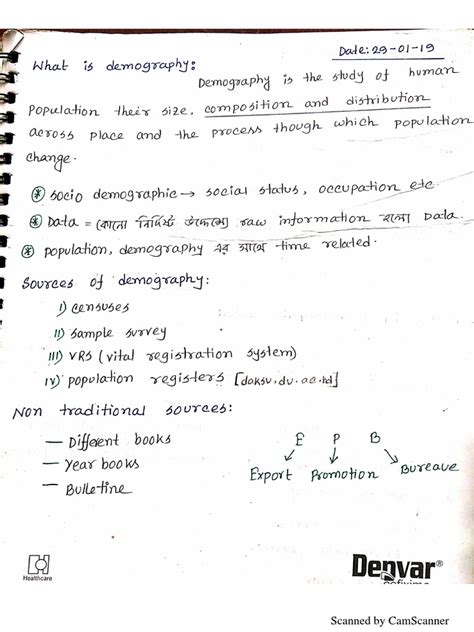 Date: 29-01-19
What is demography:
Demography is the study of human
population their size, composition and distribution
across place and the process though which population
change.
* Socio demographic → social status, occupation etc.
* Data = কোনো নির্দিষ্ট উদ্দেশ্যে raw information হলো Data.
* population, demography এর সাথে time related.
Sources of demography:
I) censuses
II) sample survey
III) VRS (vital registration system)
IV) population registers [daksu.du.ac.bd]
Non traditional sources:
— Different books
— Year books
— Bulletine
E P B
Export Promotion Bureaue
Healthcare
Denvar®
cefixime
Scanned by CamScanner